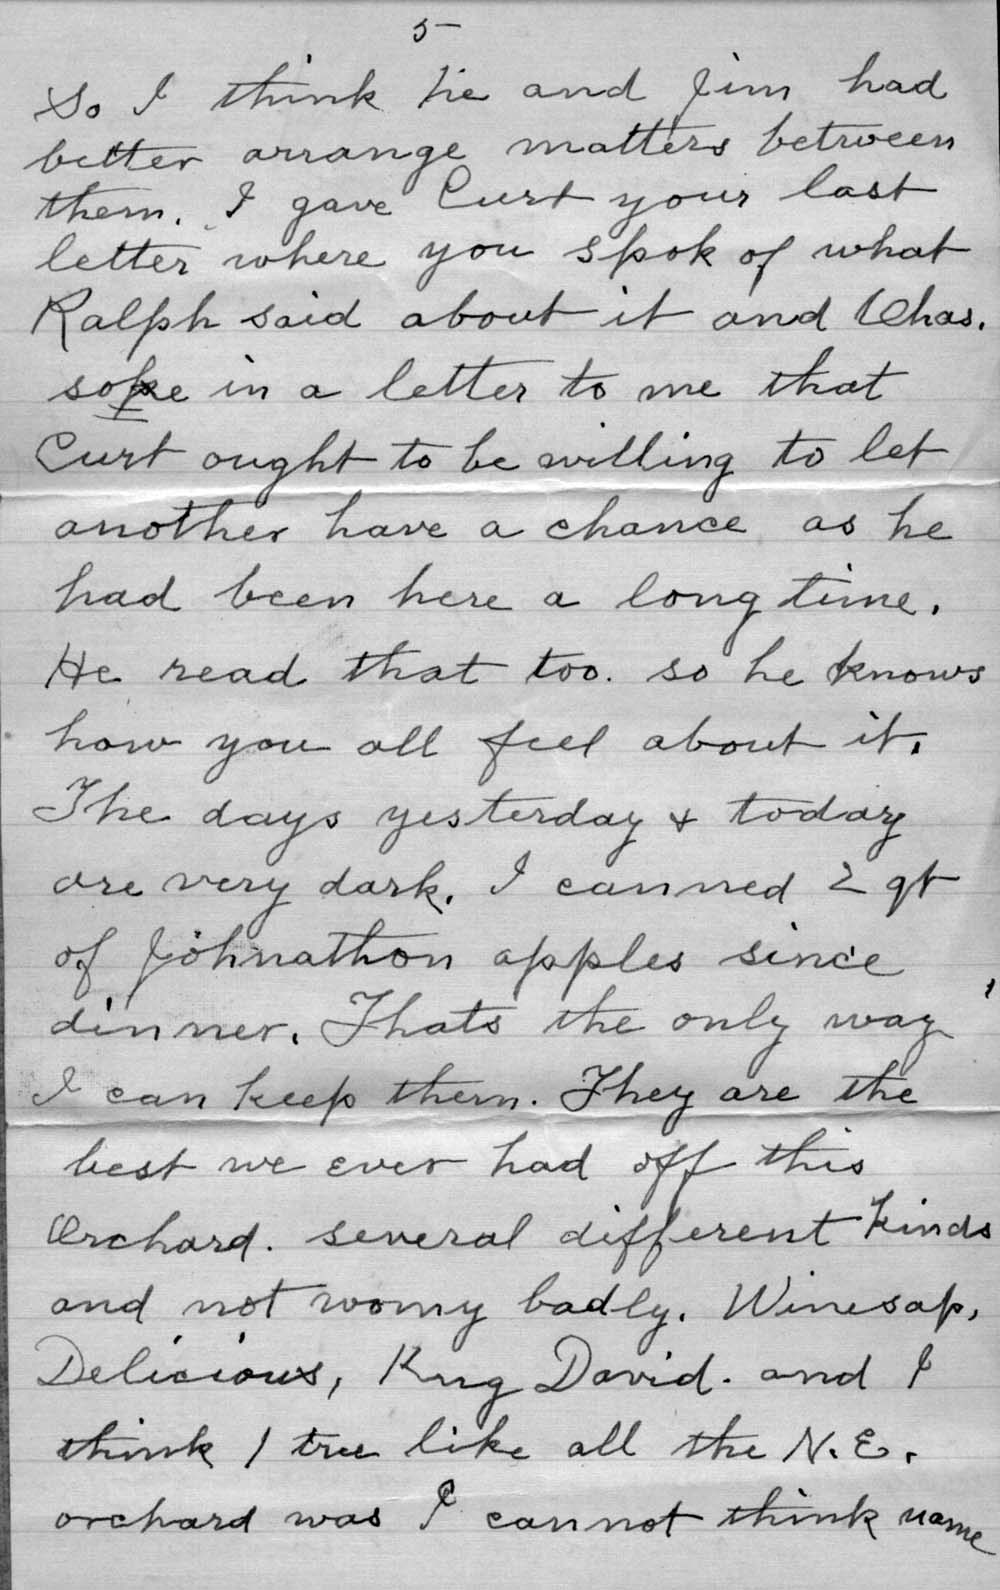 5
So I think he and Jim had
better arrange matters between
them. I gave Curt your last
letter where you spok of what
Ralph said about it and Chas.
sopke in a letter to me that
Curt ought to be willing to let
another have a chance as he
had been here a long time.
He read that too. so he knows
how you all feel about it.
The days yesterday & today
are very dark. I canned 2 qt
of Johnathon apples since
dinner. Thats the only way
I can keep them. They are the
best we ever had off this
Orchard. several different kinds
and not womy badly. Winesap,
Delicious, King David. and I
think 1 tree like all the N.E.
orchard was I cannot think name